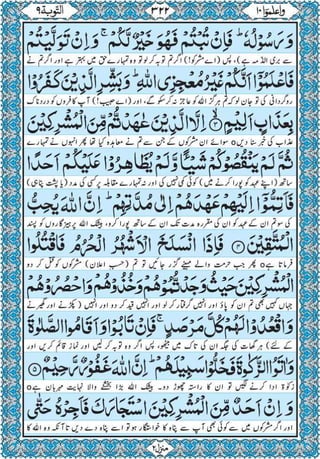 التوبة ٩
٣٢٢
واعلموا ١٠
وَرَسُوْلُهٗ ؕ فَاِنْ تُبْتُمْ فَهُوَ خَيْرٌ لَّكُمْ ۚ وَاِنْ تَوَلَّيْتُمْ
سے بری الذمہ ہے) پس، (اے مشرکو!) اگر تم توبہ کر لو تو وہ تمہارے حق میں بہتر ہے اور اگر تم نے
فَاعْلَمُوْۤا اَنَّكُمْ غَيْرُ مُعْجِزِى اللّٰهِ ؕ وَبَشِّرِ الَّذِيْنَ كَفَرُوْا
روگردانی کی تو جان لو کہ تم ہرگز اللہ کو عاجز نہ کر سکو گے، اور (اے حبیب!) آپ کافروں کو دردناک
بِعَذَابٍ اَلِيْمٍ ۙ اِلَّا الَّذِيْنَ عٰهَدْتُّمْ مِّنَ الْمُشْرِكِيْنَ
عذاب کی خبر سنا دیں سوائے ان مشرکوں کے جن سے تم نے معاہدہ کیا تھا پھر انہوں نے تمہارے
ثُمَّ لَمْ يَنْقُصُوْكُمْ شَيْـًٔا وَّلَمْ يُظَاهِرُوْا عَلَيْكُمْ اَحَدًا
ساتھ (اپنے عہد کو پورا کرنے میں) کوئی کمی نہیں کی اور نہ تمہارے مقابلہ پر کسی کی مدد (یا پشت پناہی)
فَاَتِمُّوْۤا اِلَيْهِمْ عَهْدَهُمْ اِلٰى مُدَّتِهِمْ ؕ اِنَّ اللّٰهَ يُحِبُّ
کی سو تم ان کے عہد کو ان کی مقررہ مدت تک ان کے ساتھ پورا کرو، بیشک اللہ پرہیزگاروں کو پسند
الْمُتَّقِيْنَ ۞ فَاِذَا انْسَلَخَ الْاَشْهُرُ الْحُرُمُ فَاقْتُلُوا
فرماتا ہے پھر جب حرمت والے مہینے گزر جائیں تو تم (حسبِ اعلان) مشرکوں کو قتل کر دو
الْمُشْرِكِيْنَ حَيْثُ وَجَدْتُّمُوْهُمْ وَخُذُوْهُمْ وَاحْصُرُوْهُمْ
جہاں کہیں بھی تم ان کو پاؤ اور انہیں گرفتار کر لو اور انہیں قید کر دو اور انہیں (پکڑنے اور گھیرنے
وَاقْعُدُوْا لَهُمْ كُلَّ مَرْصَدٍ ۚ فَاِنْ تَابُوْا وَاَقَامُوا الصَّلٰوةَ
کے لئے) ہر گھات کی جگہ ان کی تاک میں بیٹھو، پس اگر وہ توبہ کر لیں اور نماز قائم کریں اور
وَاٰتَوُا الزَّكٰوةَ فَخَلُّوْا سَبِيْلَهُمْ ؕ اِنَّ اللّٰهَ غَفُوْرٌ رَّحِيْمٌ ۵
زکوٰۃ ادا کرنے لگیں تو ان کا راستہ چھوڑ دو۔ بیشک اللہ بڑا بخشنے والا نہایت مہربان ہے
وَاِنْ اَحَدٌ مِّنَ الْمُشْرِكِيْنَ اسْتَجَارَكَ فَاَجِرْهُ حَتّٰى
اور اگر مشرکوں میں سے کوئی بھی آپ سے پناہ کا خواستگار ہو تو اسے پناہ دے دیں تا آنکہ وہ اللہ کا
منزل ٢